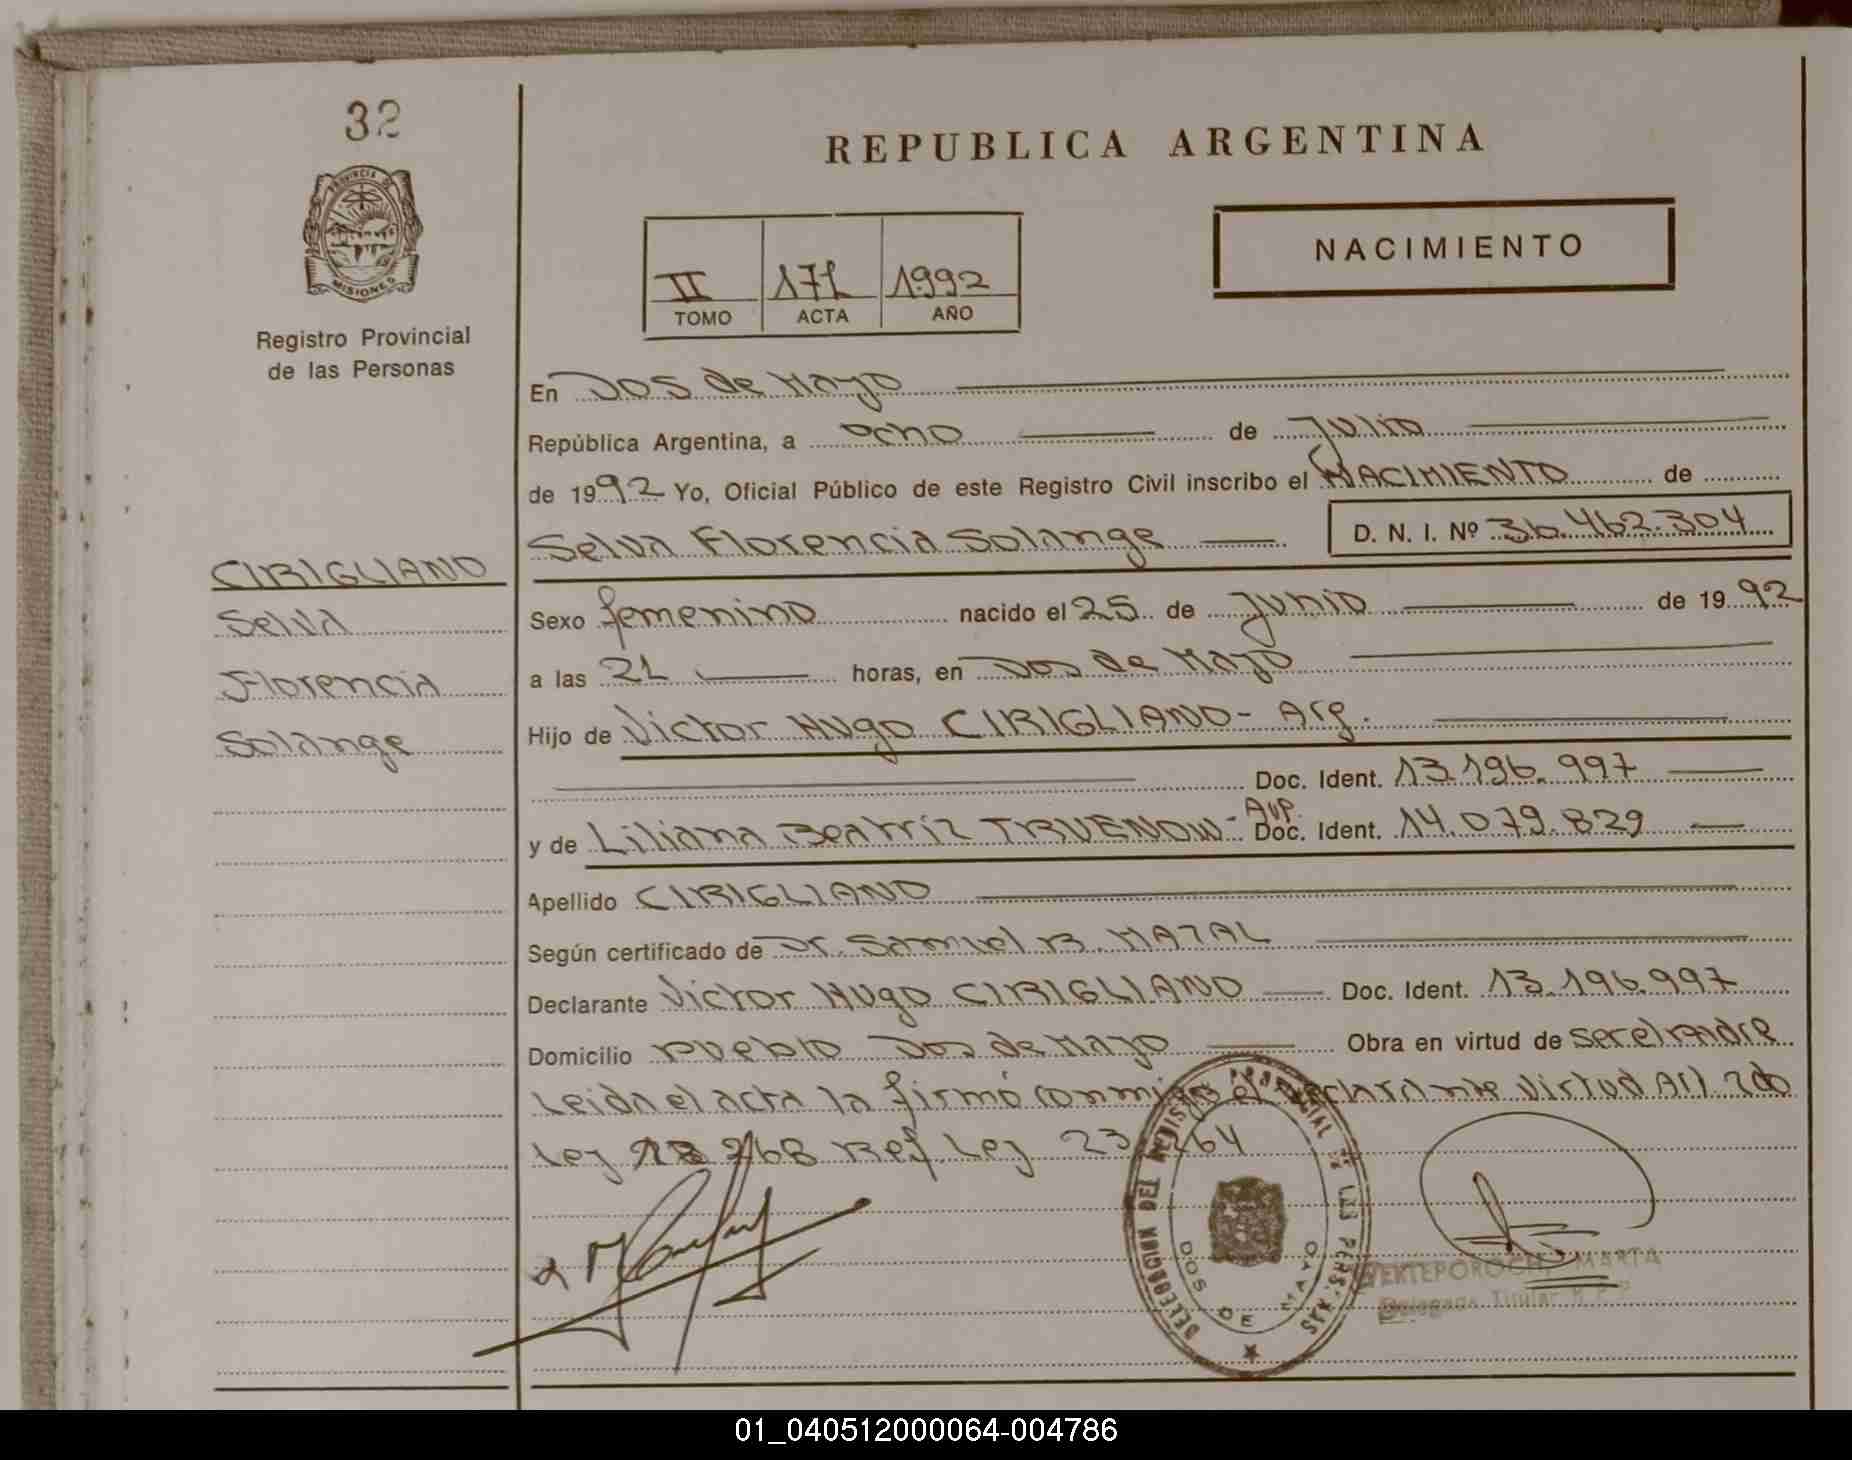 32
PROVINCIA DE
MISIONES
Registro Provincial
de las Personas
CIRIGLIANO
Selva
Florencia
Solange
REPUBLICA ARGENTINA
NACIMIENTO
II 171 1992
TOMO ACTA AÑO
En Dos de Mayo
República Argentina, a ocho de Julio
de 1992 Yo, Oficial Público de este Registro Civil inscribo el NACIMIENTO de
Selva Florencia Solange D. N. I. Nº 36.462.304
Sexo femenino nacido el 25 de Junio de 1992
a las 21 horas, en Dos de Mayo
Hijo de Victor Hugo CIRIGLIANO - Arg.
Doc. Ident. 13.196.997
y de Liliana Beatriz TRUENOW - Arg. Doc. Ident. 14.079.829
Apellido CIRIGLIANO
Según certificado de Dr. Samuel B. MAZAL
Declarante Victor Hugo CIRIGLIANO Doc. Ident. 13.196.997
Domicilio Pueblo Dos de Mayo Obra en virtud de ser el Padre
Leida el acta la firmó conmigo el declarante Virtud Art. 2do
Ley 18 Ref. Ley 23 264
DELEGACION DEL REGISTRO PROVINCIAL DE LAS PERSONAS
DOS DE MAYO
MARTA
Delegada Titular R.P.P.
01_040512000064-004786